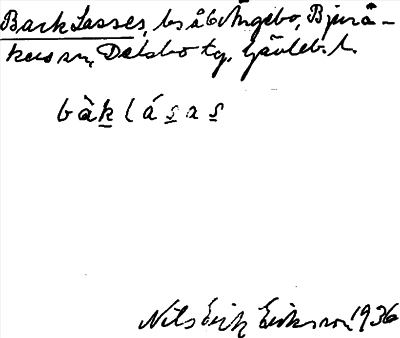 Back Lasses, bs å by Ängebo, Bjurå-
kers sn, Delsbo tg. Gävleb. l.
bàklásas
Nils Erik Eriksson 1936